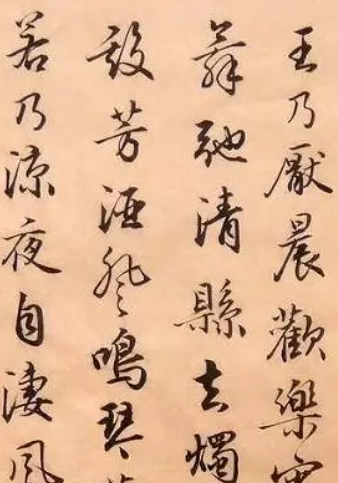 王乃厭晨歡樂
舞弛清縣去燭
殿芳酒登鳴琴
若乃涼夜自淒風